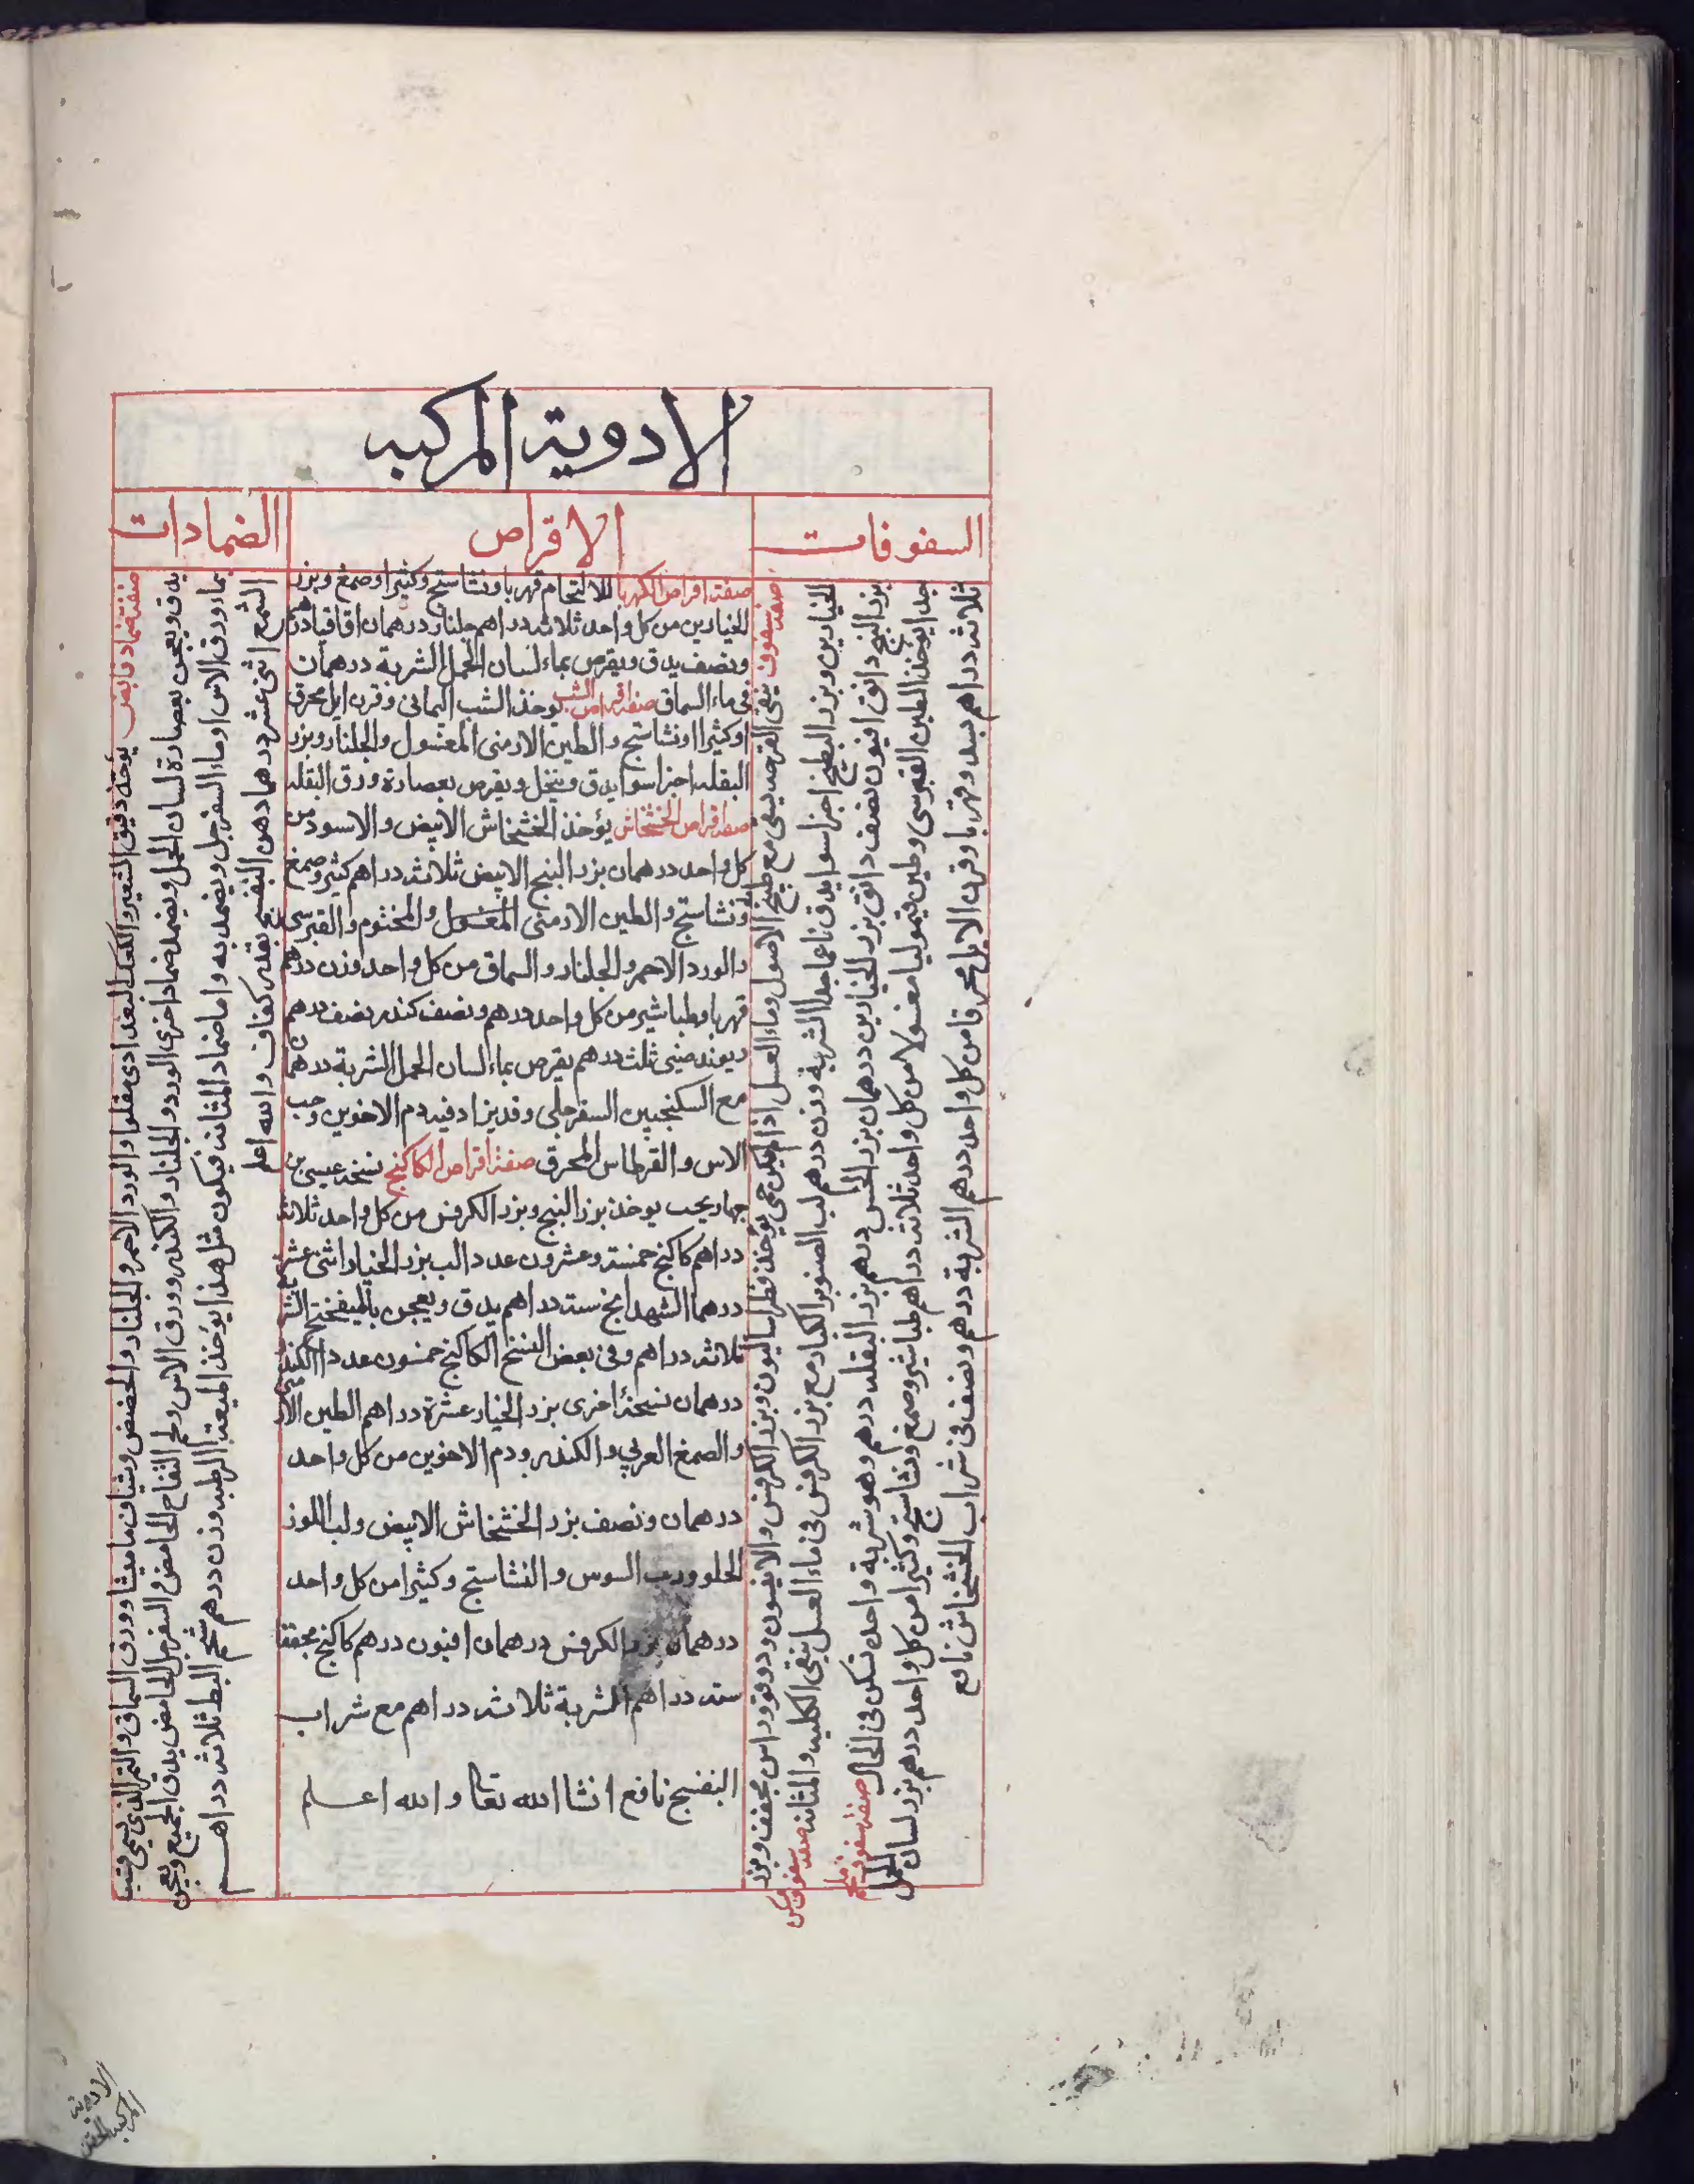 الادوية المركبه
السفوفات
الاقراص
الضمادات
صفة سفوف ينقي القرحه يسقي مع طبيخ الاصول وماء العسل اذا لم يكن حمي يوخذ فطراساليون وبزر الكرفس والانيسون ودوقو واس مجفف وبزر
الخيارين وبزر البطيخ اجزا سوا يدق ناعما جدا الشربة وزن درهم لب الصنوبر الكبار مع بزر الكرفس في ماء العسل ينقي الكليه والمثانه صفة سفوف يسكن
بزر البنج دانق افيون نصف دانق بزر الخيارين درهمان بزر الخس درهم بزر البقله درهم وهو شربة واحده تسكن في الحال صفة سفوف ملحم
جدا يوخذ الطين القبرسي وطين قيموليا مغسولا من كل واحد ثلاثه دراهم طباشير وصمغ ونشاستج وكثيرا من كل واحد درهم بزر لسان الحمل
ثلاثه دراهم بسد وقهربا وقرن الايل محرقا من كل واحد درهم الشربة درهم ونصف في شراب الخشخاش نافع
صفة اقراص الكهربا للالتحام قهربا ونشاستج وكثيرا وصمغ وبزر
الخيارين من كل واحد ثلاثه دراهم جلنار درهمان اقاقيا درهم
ونصف يدق ويقرص بماء لسان الحمل الشربة درهمان
في ماء السماق صفة اقراص الشب يوخذ الشب اليماني وقرن ايل محرق
وكثيرا ونشاستج والطين الارمني المغسول والجلنار وبزر
البقله اجزا سوا يدق وينخل ويقرص بعصارة ورق البقله
صفة اقراص الخشخاش يؤخذ الخشخاش الابيض والاسود من
كل واحد درهمان بزر البنج الابيض ثلاثه دراهم كثيرا وصمغ
ونشاستج والطين الارمني المغسول والمختوم والقبرسي
والورد الاحمر والجلنار والسماق من كل واحد وزن درهم
قهربا وطباشير من كل واحد درهم ونصف كندر نصف درهم
ريوند صيني ثلث درهم يقرص بماء لسان الحمل الشربة درهمان
مع السكنجبين السفرجلي وقد يزاد فيه دم الاخوين وحب
الاس والقرطاس المحرق صفة اقراص الكاكنج نسخة عيسى بن
جهاربخت يوخذ بزر البنج وبزر الكرفس من كل واحد ثلاثه
دراهم كاكنج خمسة وعشرون عددا لب بزر الخيار اثني عشر
درهما الشهدانج سته دراهم يدق ويعجن بالميفختج الشربة
ثلاثه دراهم وفي بعض النسخ الكاكنج خمسون عددا الكندر
درهمان نسخة اخرى بزر الخيار عشرة دراهم الطين الارمني
والصمغ العربي والكندر ودم الاخوين من كل واحد
درهمان ونصف بزر الخشخاش الابيض ولب اللوز
الحلو ورب السوس والنشاستج وكثيرا من كل واحد
درهمان بزر الكرفس درهمان افيون درهم كاكنج مجففا
سته دراهم الشربة ثلاثه دراهم مع شراب
البنفسج نافع انشا الله تعا والله اعلم
صفة ضماد قابض يوخذ دقيق الشعير والكعك البغدادي مقلوا والورد الاحمر والجلنار والحضض وشياف ماميثا وورق السماق والتمر الذي يسمي قسب
يدق ويعجن بعصارة لسان الحمل ويضمد ضماد اخرى الورد والجلنار والكندر وورق الاس ولحم التفاح الحامض والسفرجل الحامض يدق الجميع ويعجن
بماء ورق الاس او ماء السفرجل ويضمد به واما ضماد المثانه فيكون مثل هذا يوخذ الميعة الرطبه وزن درهم شحم البط ثلاثه دراهم
الشمع اثني عشر درهما دهن البنفسج بقدر كفاف والله اعلم
الادوية
المركبه